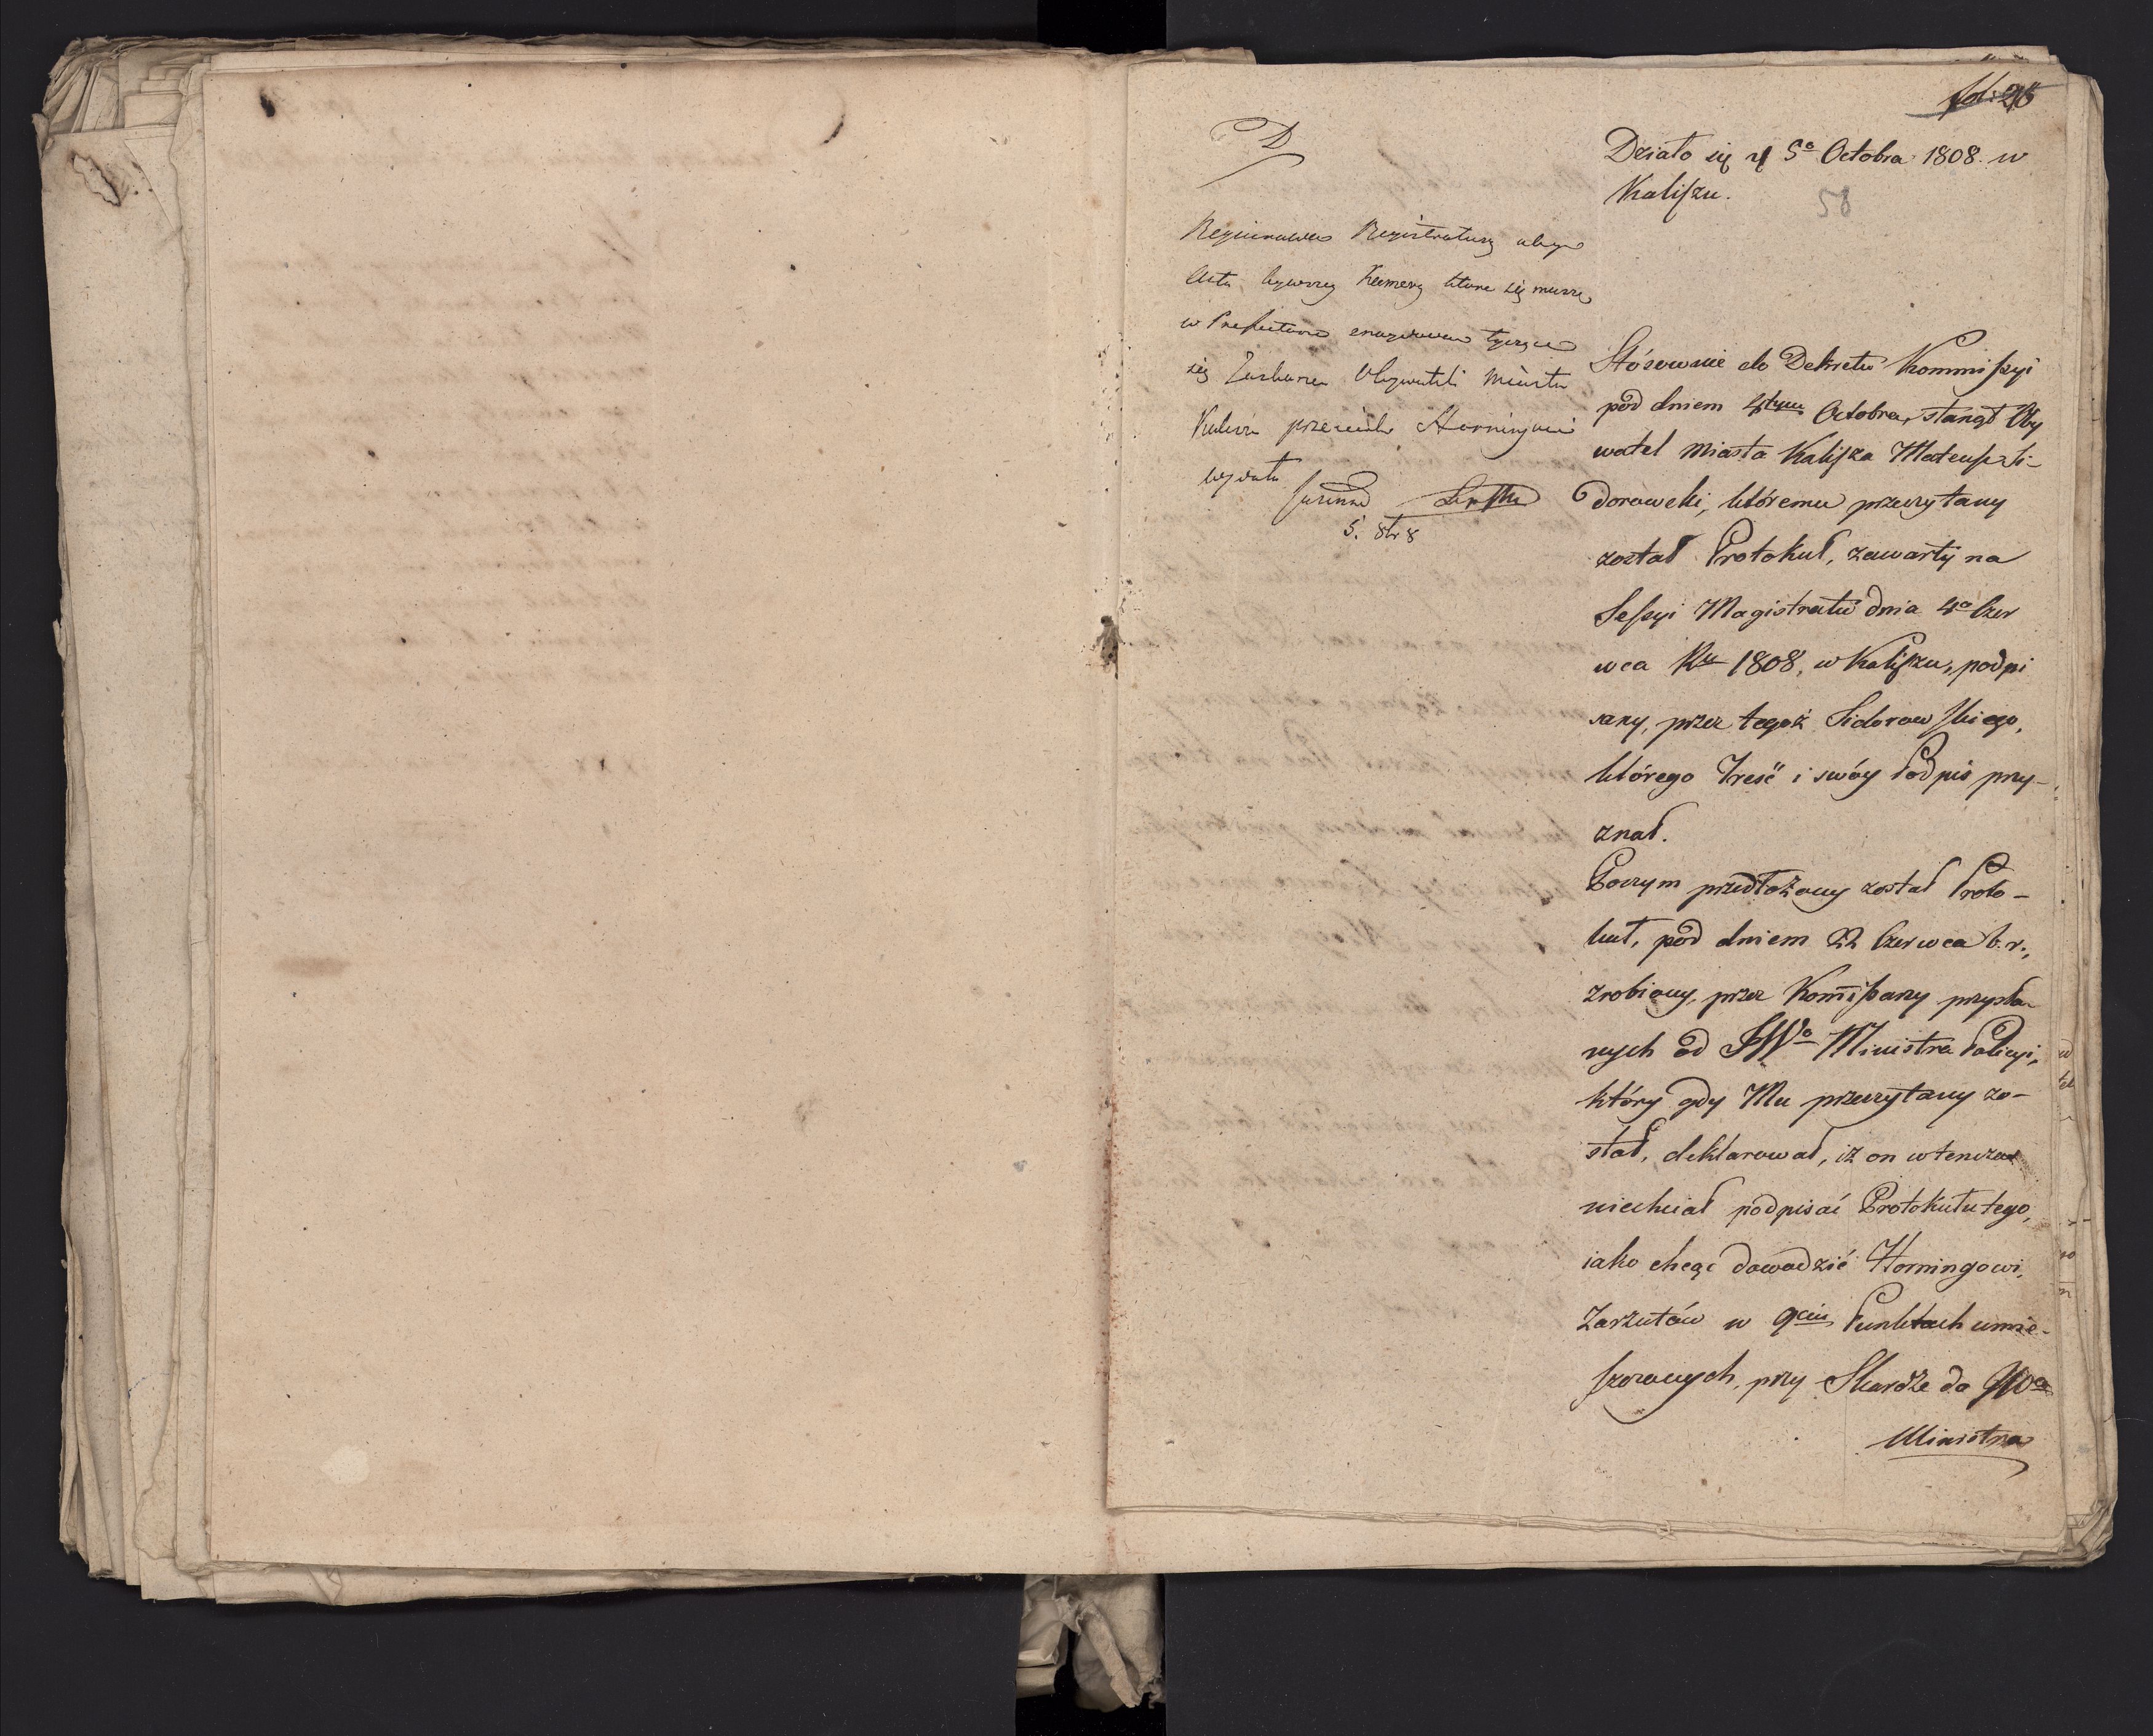 fol: 28
D
Działo się d 5º Octobra 1808. w
Kaliſzu.
58
Registratury aby
Acta bywszey Kamery ktore się muszą
w Prefekturze tyczące
się Obywateli Miasta
Kalisza przeciwko Horningowi
wydała
5. 8br 8
Stósownie do Dekretu Kommiſsyi
pod dniem 4tym Octobra, stanął Oby
watel Miasta Kaliſza Mateuſz Si-
dorowski, któremu przeczytany
został Protokuł, zawarty na
Seſsyi Magistratu dnia 4º Czer
wca Ru 1808, w Kaliſzu, podpi
sany, przez tegoż Sidorowſkiego,
którego Treść i swóy Podpis przy-
znał.
Poczym przedłożony został Proto-
kuł, pod dniem 22 Czerwca b. r.,
zrobiony, przez Kom̃iſsarzy przysła-
nych od JWº Ministra Policyi,
który gdy Mu przeczytany zo-
stał, deklarował, iż on wtenczas
niechciał podpisać Protokułu tego,
iako chcąc dowodzić Horningowi,
Zarzutów w 9ciu Punktach umie-
ſzczonych, przy Skardze do JWº
Ministra